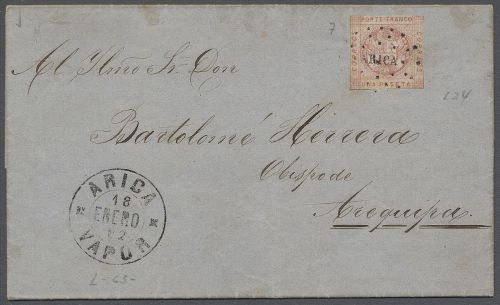 7
PORTE FRANCO
CORREOS
ARICA
UNA PESETA
L24
Al Ilmo Sr. Don
Bartolomé Herrera
Obispo de
Arequipa.
ARICA
18
ENERO
62
VAPOR
L-65-